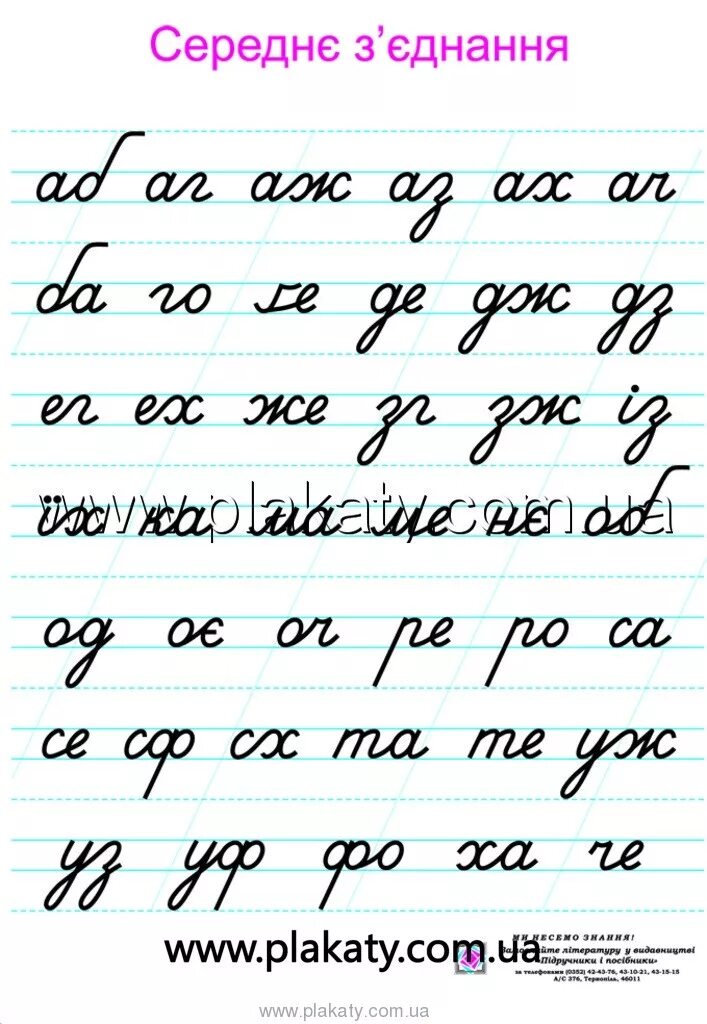 Середнє з’єднання
аб аг аж аз ах ач
ба го ґе де дж дз
ег ех же зг зж із
їх ка ма ме нє об
www.plakaty.com.ua
од оє оч ре ро са
се сф сх та те уж
уз уф фо ха че
www.plakaty.com.ua
МИ НЕСЕМО ЗНАННЯ!
Замовляйте літературу у видавництві
«Підручники і посібники»
за телефонами (0352) 42-43-76, 43-10-21, 43-15-15
А/С 376, Тернопіль, 46011
www.plakaty.com.ua